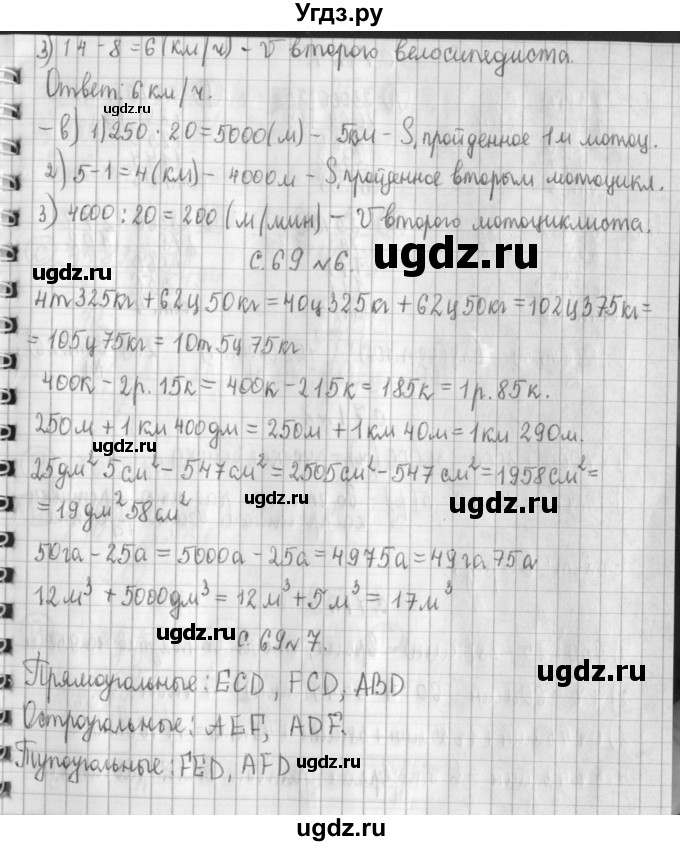 Угдз.ру
3) 14 - 8 = 6 (км/ч) - V второго велосипедиста.
Ответ: 6 км/ч.
ugdz.ru
- в) 1) 250 · 20 = 5000 (м) - 5км - S, пройденное 1м мотоц.
2) 5 - 1 = 4 (км) - 4000м - S, пройденное вторым мотоцикл.
3) 4000 : 20 = 200 (м/мин) - V второго мотоциклиста.
с. 69 №6.
ugdz.ru
ugdz.ru
4т 325кг + 62ц 50кг = 40ц 325кг + 62ц 50кг = 102ц 375кг =
= 105ц 75кг = 10т 5ц 75кг
ugdz.ru
400к - 2р. 15к = 400к - 215к = 185к = 1р. 85к.
250м + 1км 400дм = 250м + 1км 40м = 1км 290м.
ugdz.ru
25дм² 5см² - 547см² = 2505см² - 547см² = 1958см² =
= 19дм² 58см²
ugdz.ru
ugdz.ru
50га - 25а = 5000а - 25а = 4975а = 49га 75а
12м³ + 5000дм³ = 12м³ + 5м³ = 17м³
ugdz.ru
с. 69 №7.
ugdz.ru
Прямоугальные: ECD, FCD, ABD
Остроугальные: AEF, ADF.
Тупоугальные: FED, AFD
ugdz.ru
ugdz.ru